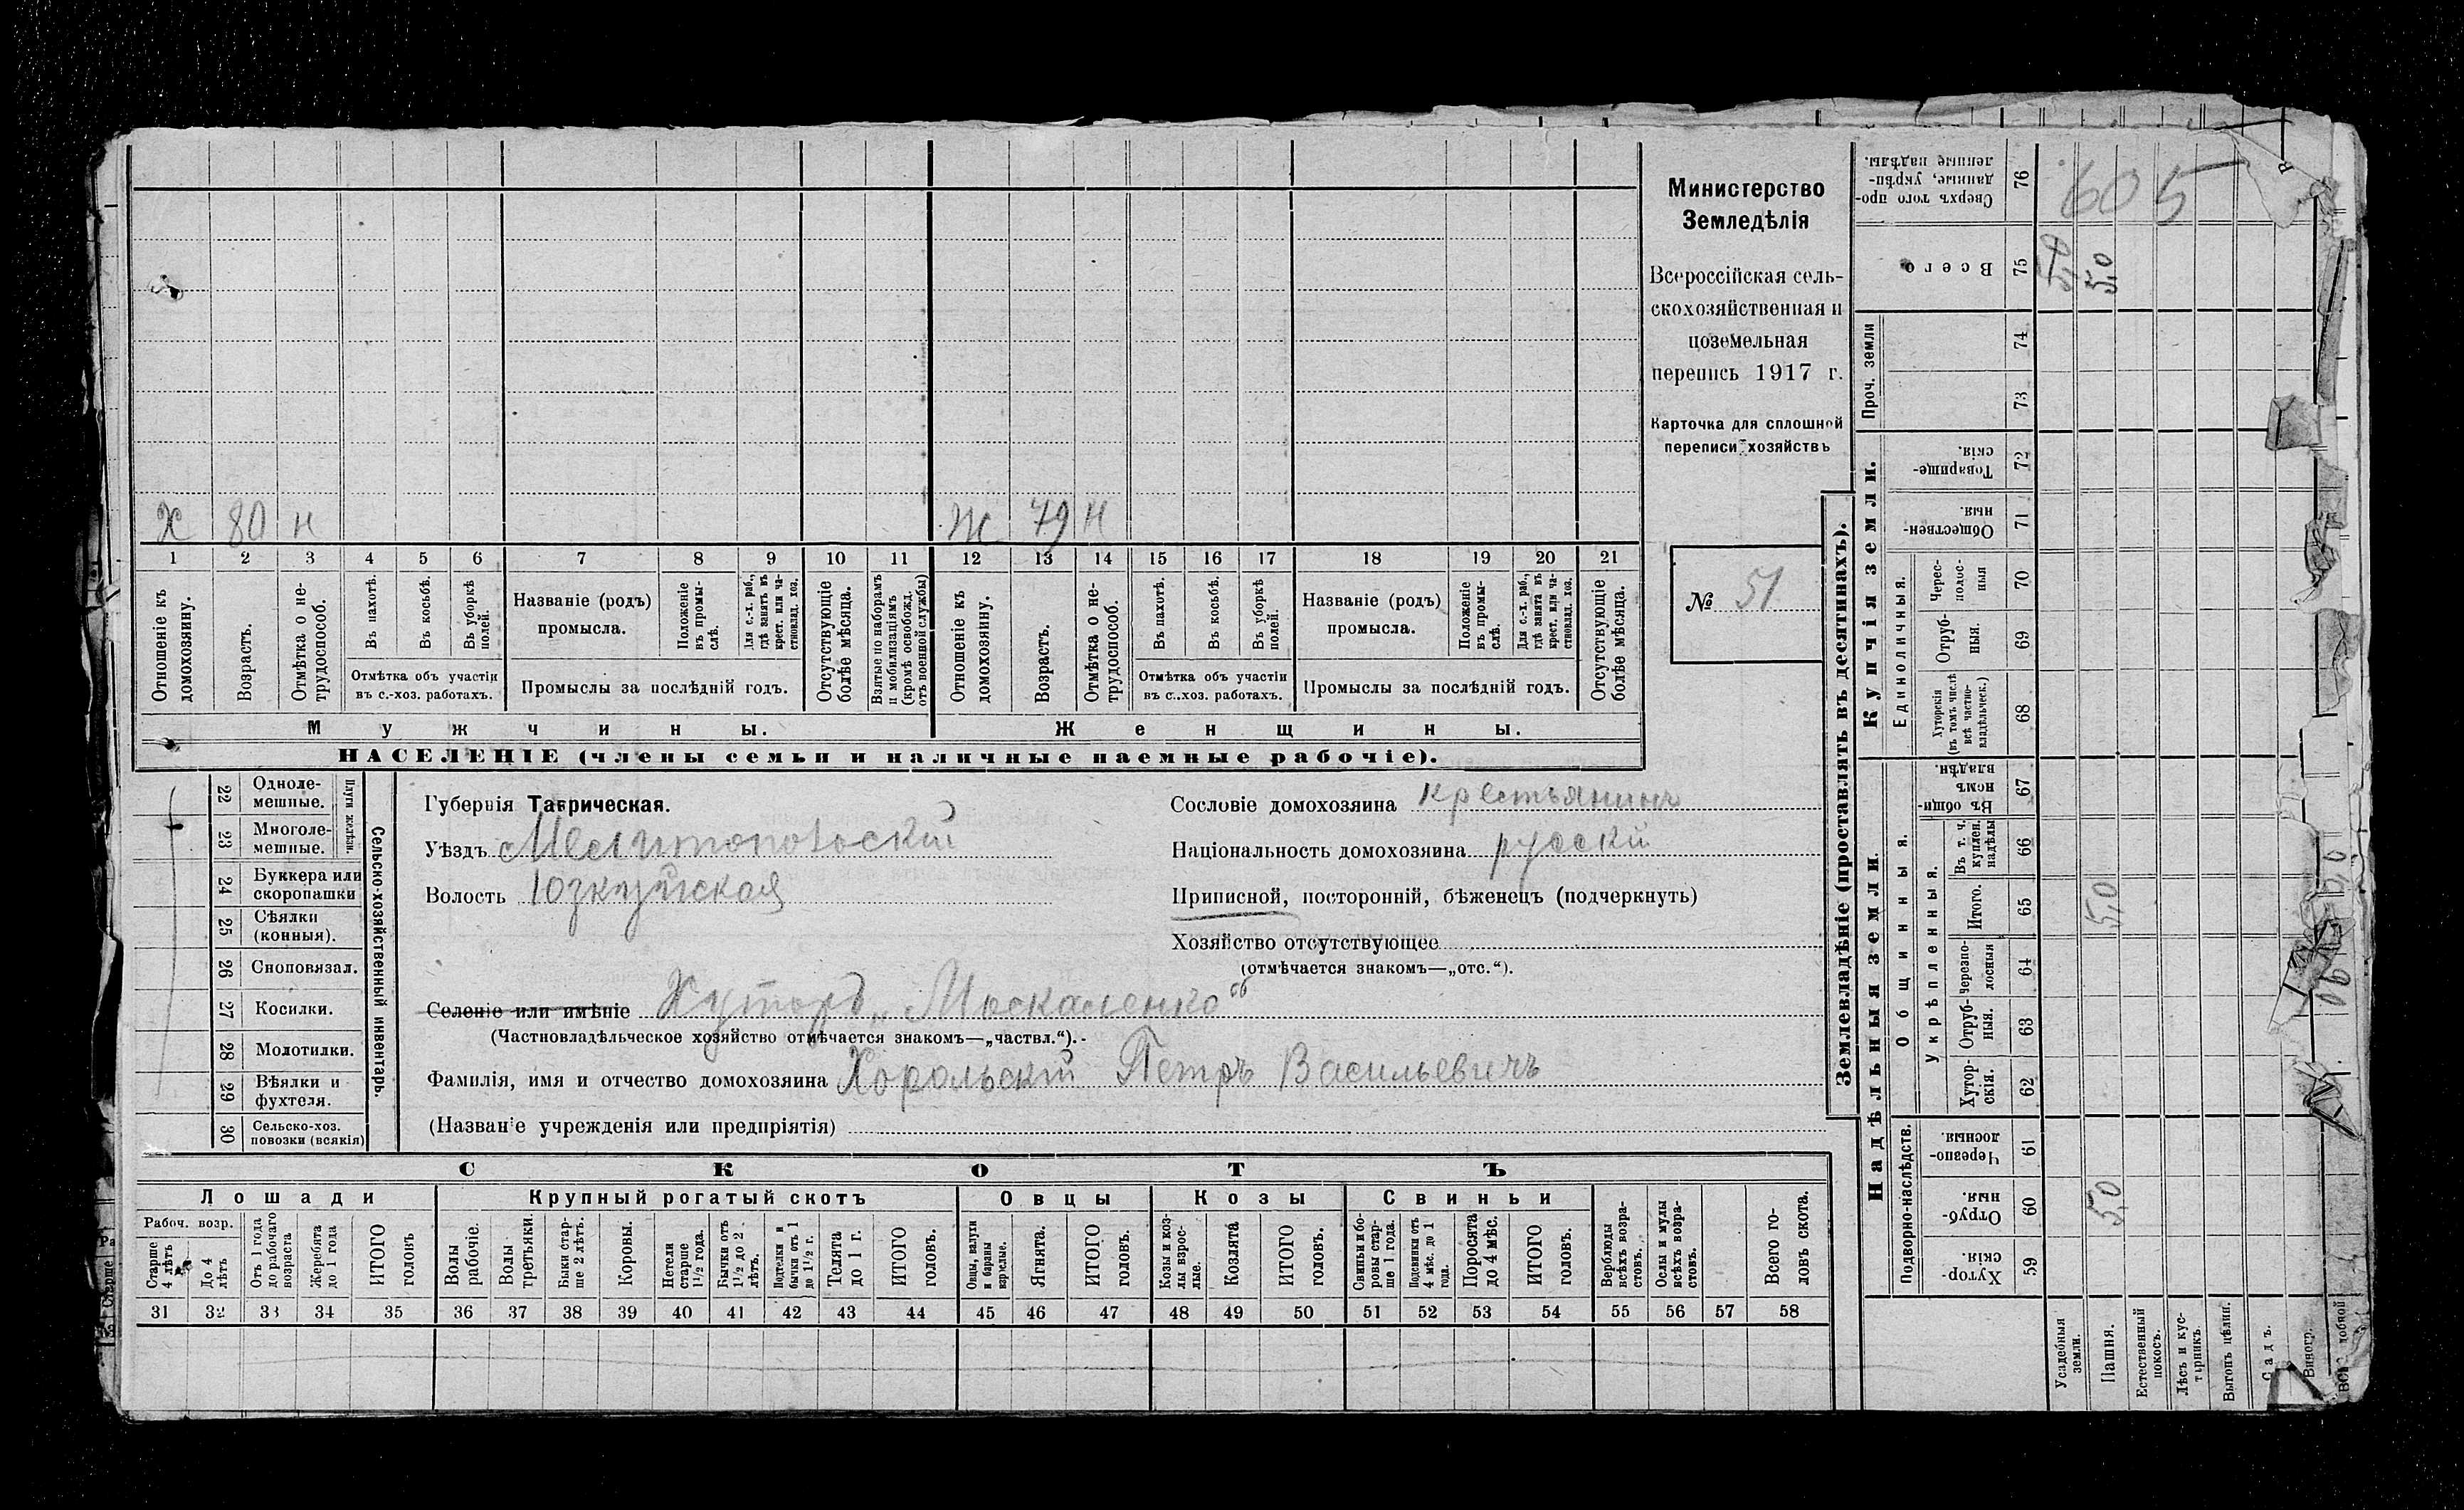 Х 80 н Ж 79 н
1 2 3 4 5 6 7 8 9 10 11 12 13 14 15 16 17 18 19 20 21
Отношеніе къ домохозяину.
Возрастъ.
Отмѣтка о не-трудоспособ.
Въ пахотѣ.
Въ косьбѣ.
Въ уборкѣ полей.
Отмѣтка объ участіи
въ с.-хоз. работахъ.
Названіе (родъ)
промысла.
Положеніе въ промы-слѣ.
Для с.-х. раб., гдѣ занятъ въ крест. или ча-стновлад. хоз.
Промыслы за послѣдній годъ.
Отсутствующіе болѣе мѣсяца.
Взятые по наборамъ и мобилизаціямъ (кромѣ освобожд. отъ военной службы)
Отношеніе къ домохозяину.
Возрастъ.
Отмѣтка о не-трудоспособ.
Въ пахотѣ.
Въ косьбѣ.
Въ уборкѣ полей.
Отмѣтка объ участіи
въ с.-хоз. работахъ.
Названіе (родъ)
промысла.
Положеніе въ промы-слѣ.
Для с.-х. раб., гдѣ занята въ крест. или ча-стновлад. хоз.
Промыслы за послѣдній годъ.
Отсутствующіе болѣе мѣсяца.
Мужчины. Женщины.
НАСЕЛЕНІЕ (члены семьи и наличные наемные рабочіе).
Министерство
Земледѣлія
Всероссійская сель-
скохозяйственная и
поземельная
перепись 1917 г.
Карточка для сплошной
переписи хозяйствъ
№ 51
22 Одноле-мешные.
23 Многоле-мешные.
Плуги желѣзн.
24 Буккера или скоропашки
25 Сѣялки (конныя).
26 Сноповязал.
27 Косилки.
28 Молотилки.
29 Вѣялки и фухтеля.
30 Сельско-хоз. повозки (всякія)
Сельско-хозяйственный инвентарь.
Губернія Таврическая.
Уѣздъ Мелитопольскій
Волость Юзкуйская
Сословіе домохозяина крестьянинъ
Національность домохозяина рускій
Приписной, посторонній, бѣженецъ (подчеркнуть)
Хозяйство отсутствующее
(отмѣчается знакомъ—„отс.“).
Селеніе или имѣніе Хуторъ „Москаленко“
(Частновладѣльческое хозяйство отмѣчается знакомъ—„частвл.“).
Фамилія, имя и отчество домохозяина Хорольскій Петръ Васильевичъ
(Названіе учрежденія или предпріятія)
СКОТЪ
Лошади Крупный рогатый скотъ Овцы Козы Свиньи
Рабоч. возр.
Старше 4 лѣтъ
До 4 лѣтъ
Отъ 1 года до рабочаго возраста
Жеребята до 1 года
ИТОГО головъ
Волы рабочіе.
Волы третьяки.
Быки стар-ше 2 лѣтъ.
Коровы.
Нетели старше 1½ года.
Бычки отъ 1½ до 2 лѣтъ.
Подтелки и бычки отъ 1 до 1½ г.
Телята до 1 г.
ИТОГО головъ.
Овцы, валухи и бараны взрослые.
Ягнята.
ИТОГО головъ.
Козы и коз-лы взрос-лые.
Козлята
ИТОГО головъ.
Свиньи и бо-ровы стар-ше 1 года.
Подсвинки отъ 4 мѣс. до 1 года.
Поросята до 4 мѣс.
ИТОГО головъ.
Верблюды всѣхъ возра-стовъ.
Ослы и мулы всѣхъ возра-стовъ.
Всего го-ловъ скота.
31 32 33 34 35 36 37 38 39 40 41 42 43 44 45 46 47 48 49 50 51 52 53 54 55 56 57 58
Землевладѣніе (проставлять въ десятинахъ).
Сверхъ того про-данные, укрѣп-ленные надѣлы. 76 605
Всего 75 5,0 5,0
Проч. земли
74
73
Купчія земли.
Товарище-скія. 72
Обществен-ныя. 71
Единоличныя.
Черес-полос-ныя 70
Отруб-ныя. 69
Хуторскія (въ томъ числѣ всѣ частно-владѣльческ.) 68
Надѣльныя земли.
Общинныя.
Въ общи-номъ владѣн. 67
Укрѣпленныя.
Въ т. ч. куплен. надѣлы 66
Итого. 65 5,0
Черезпо-лосныя 64
Отруб-ныя. 63
Хутор-скія. 62
Подворно-наслѣдств.
Черезпо-лосныя. 61
Отруб-ныя. 60 5,0
Хутор-скія. 59
Усадебныя земли.
Пашня.
Естественный покосъ.
Лѣсъ и кус-тарникъ.
Выгонъ цѣлин.
Садъ.
Виногр.